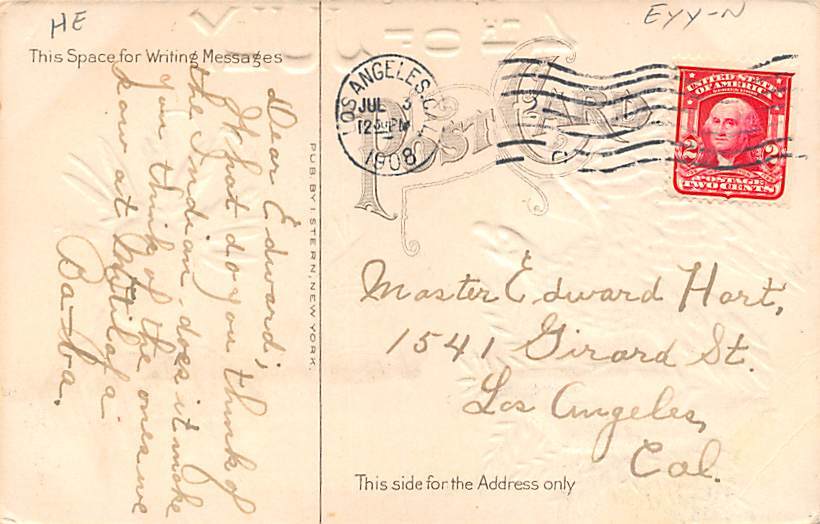 HE
EYY-N
This Space for Writing Messages
Dear Edward;
What do you think of
the Indian, does it make
you think of the ones we
saw at
Da-da.
PUB. BY I STERN, NEW YORK.
POST CARD
LOS ANGELES, CAL.
JUL 3
12 30 PM
1908
UNITED STATES
OF AMERICA
2 2
POSTAGE
TWO CENTS
Master Edward Hart,
1541 Girard St.
Los Angeles,
Cal.
This side for the Address only